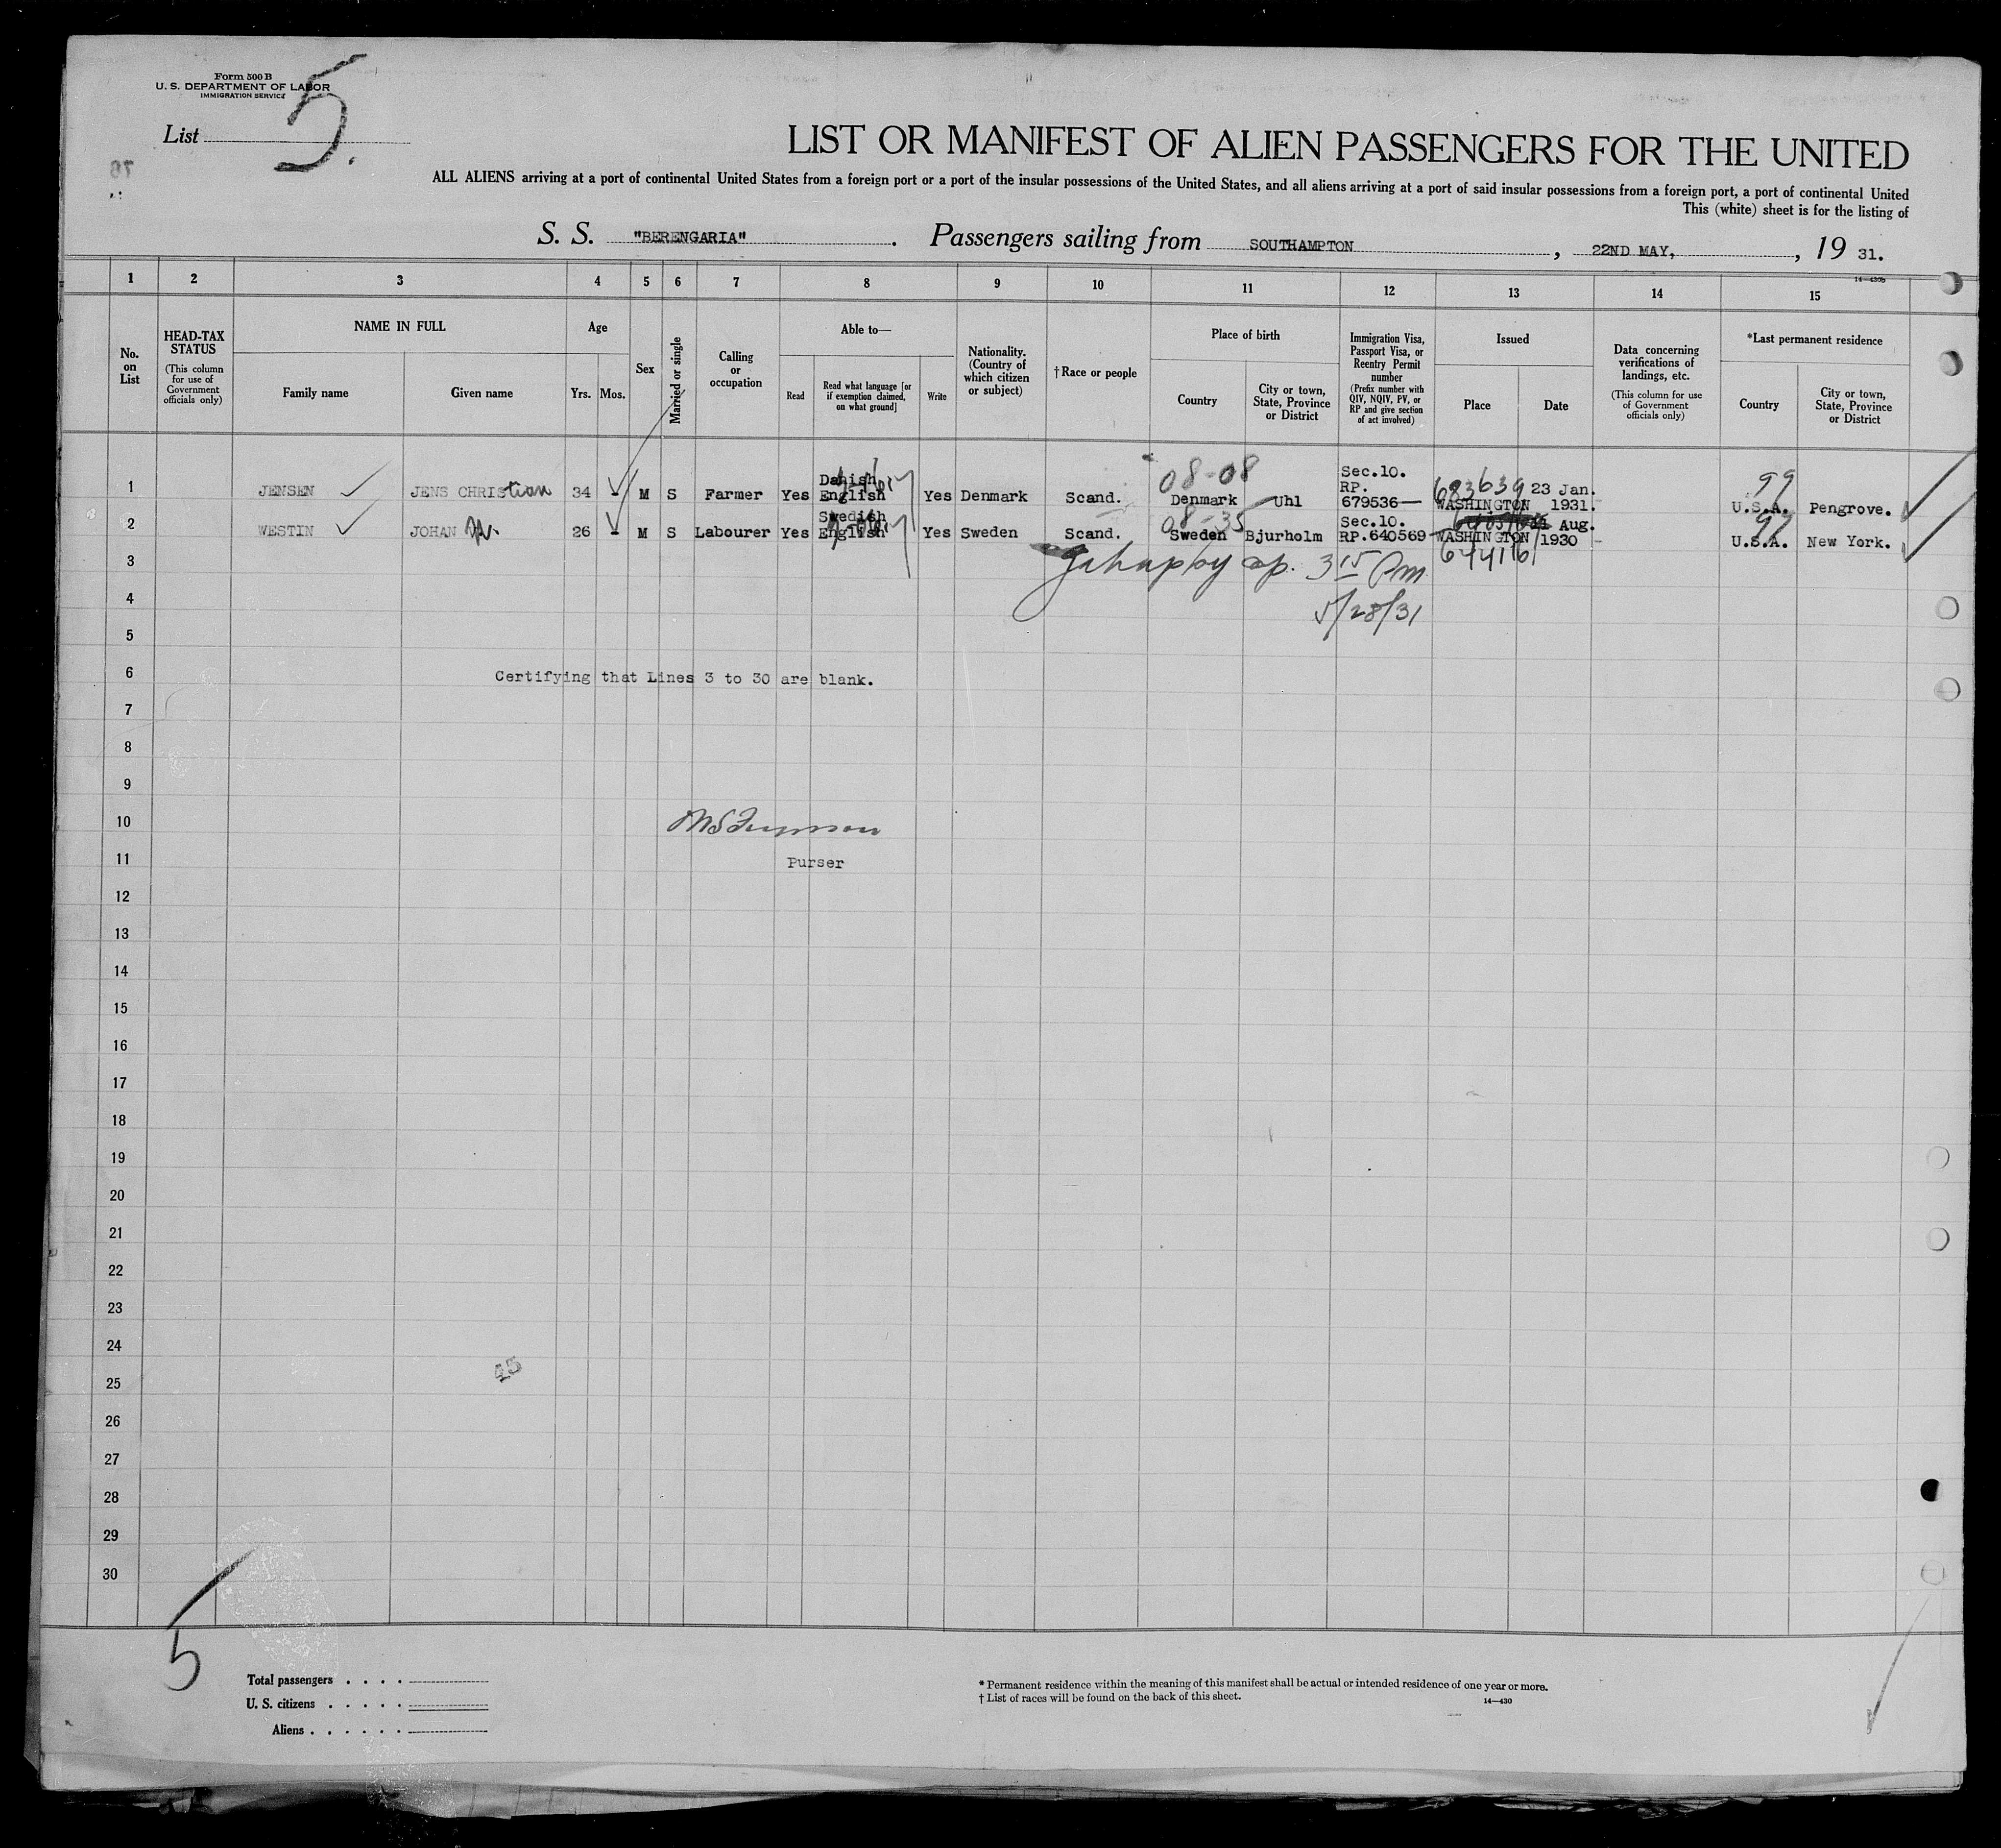 Form 500 B
U. S. DEPARTMENT OF LABOR
IMMIGRATION SERVICE
List 5.
LIST OR MANIFEST OF ALIEN PASSENGERS FOR THE UNITED
ALL ALIENS arriving at a port of continental United States from a foreign port or a port of the insular possessions of the United States, and all aliens arriving at a port of said insular possessions from a foreign port, a port of continental United
This (white) sheet is for the listing of
S. S. "BERENGARIA". Passengers sailing from SOUTHAMPTON, 22ND MAY, 19 31.
14—430b
1 2 3 4 5 6 7 8 9 10 11 12 13 14 15
No. on List
HEAD-TAX STATUS (This column for use of Government officials only)
NAME IN FULL
Family name
Given name
Age
Yrs. Mos.
Sex
Married or single
Calling or occupation
Able to—
Read
Read what language [or if exemption claimed, on what ground]
Write
Nationality. (Country of which citizen or subject)
†Race or people
Place of birth
Country
City or town, State, Province or District
Immigration Visa, Passport Visa, or Reentry Permit number (Prefix number with QIV, NQIV, PV, or RP and give section of act involved)
Issued
Place
Date
Data concerning verifications of landings, etc. (This column for use of Government officials only)
*Last permanent residence
Country
City or town, State, Province or District
08-08 683639 99
1 JENSEN JENS CHRIStian 34 - M S Farmer Yes Danish English Yes Denmark Scand. Denmark Uhl Sec.10. RP. 679536— WASHINGTON 23 Jan. 1931. U.S.A. Pengrove.
08-35 97
2 WESTIN JOHAN W. 26 - M S Labourer Yes Swedish English Yes Sweden Scand. Sweden Bjurholm Sec.10. RP.640569- WASHINGTON Aug. 1930 U.S.A. New York.
644161
3 3 15 Pm
4 5/28/31
5
6 Certifying that Lines 3 to 30 are blank.
7
8
9
10
11 Purser
12
13
14
15
16
17
18
19
20
21
22
23
24
45
25
26
27
28
29
30
5
Total passengers
U. S. citizens
Aliens
* Permanent residence within the meaning of this manifest shall be actual or intended residence of one year or more.
† List of races will be found on the back of this sheet.
14—430